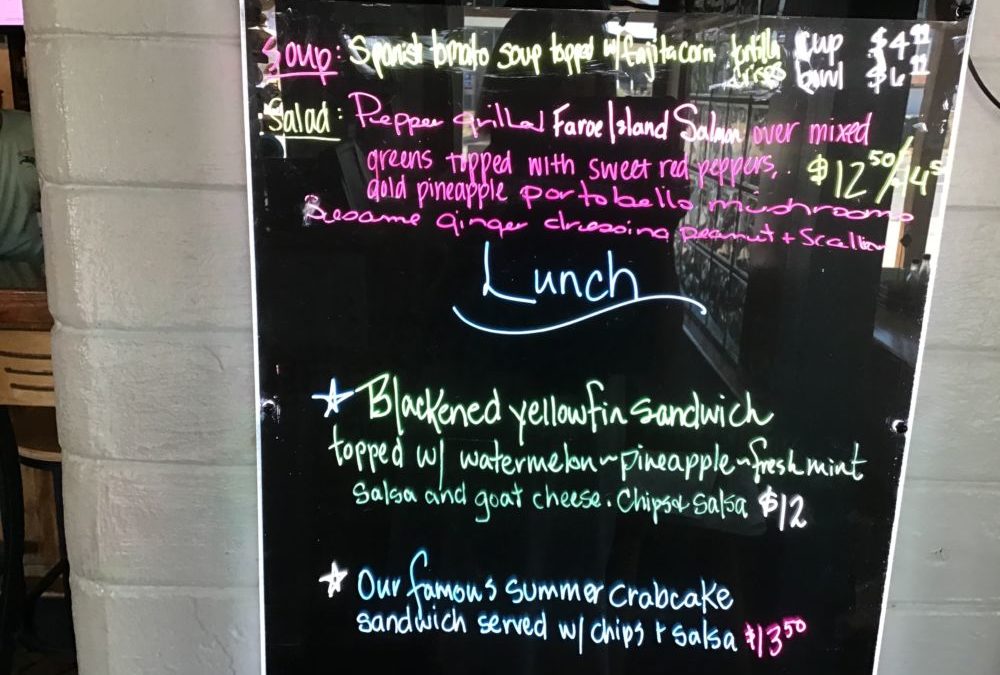 Soup: Spanish tomato soup topped w/ fajita corn tortilla crisps cup $4
bowl $6
Salad: Pepper grilled Faroe Island Salmon over mixed
greens topped with sweet red peppers, $12.50/
gold pineapple portobello mushrooms
Sesame ginger dressing peanut + Scallion
Lunch
Blackened yellowfin sandwich
topped w/ watermelon~pineapple~fresh mint
salsa and goat cheese. Chips & Salsa $12
Our famous summer crabcake
sandwich served w/ chips + salsa $13.50